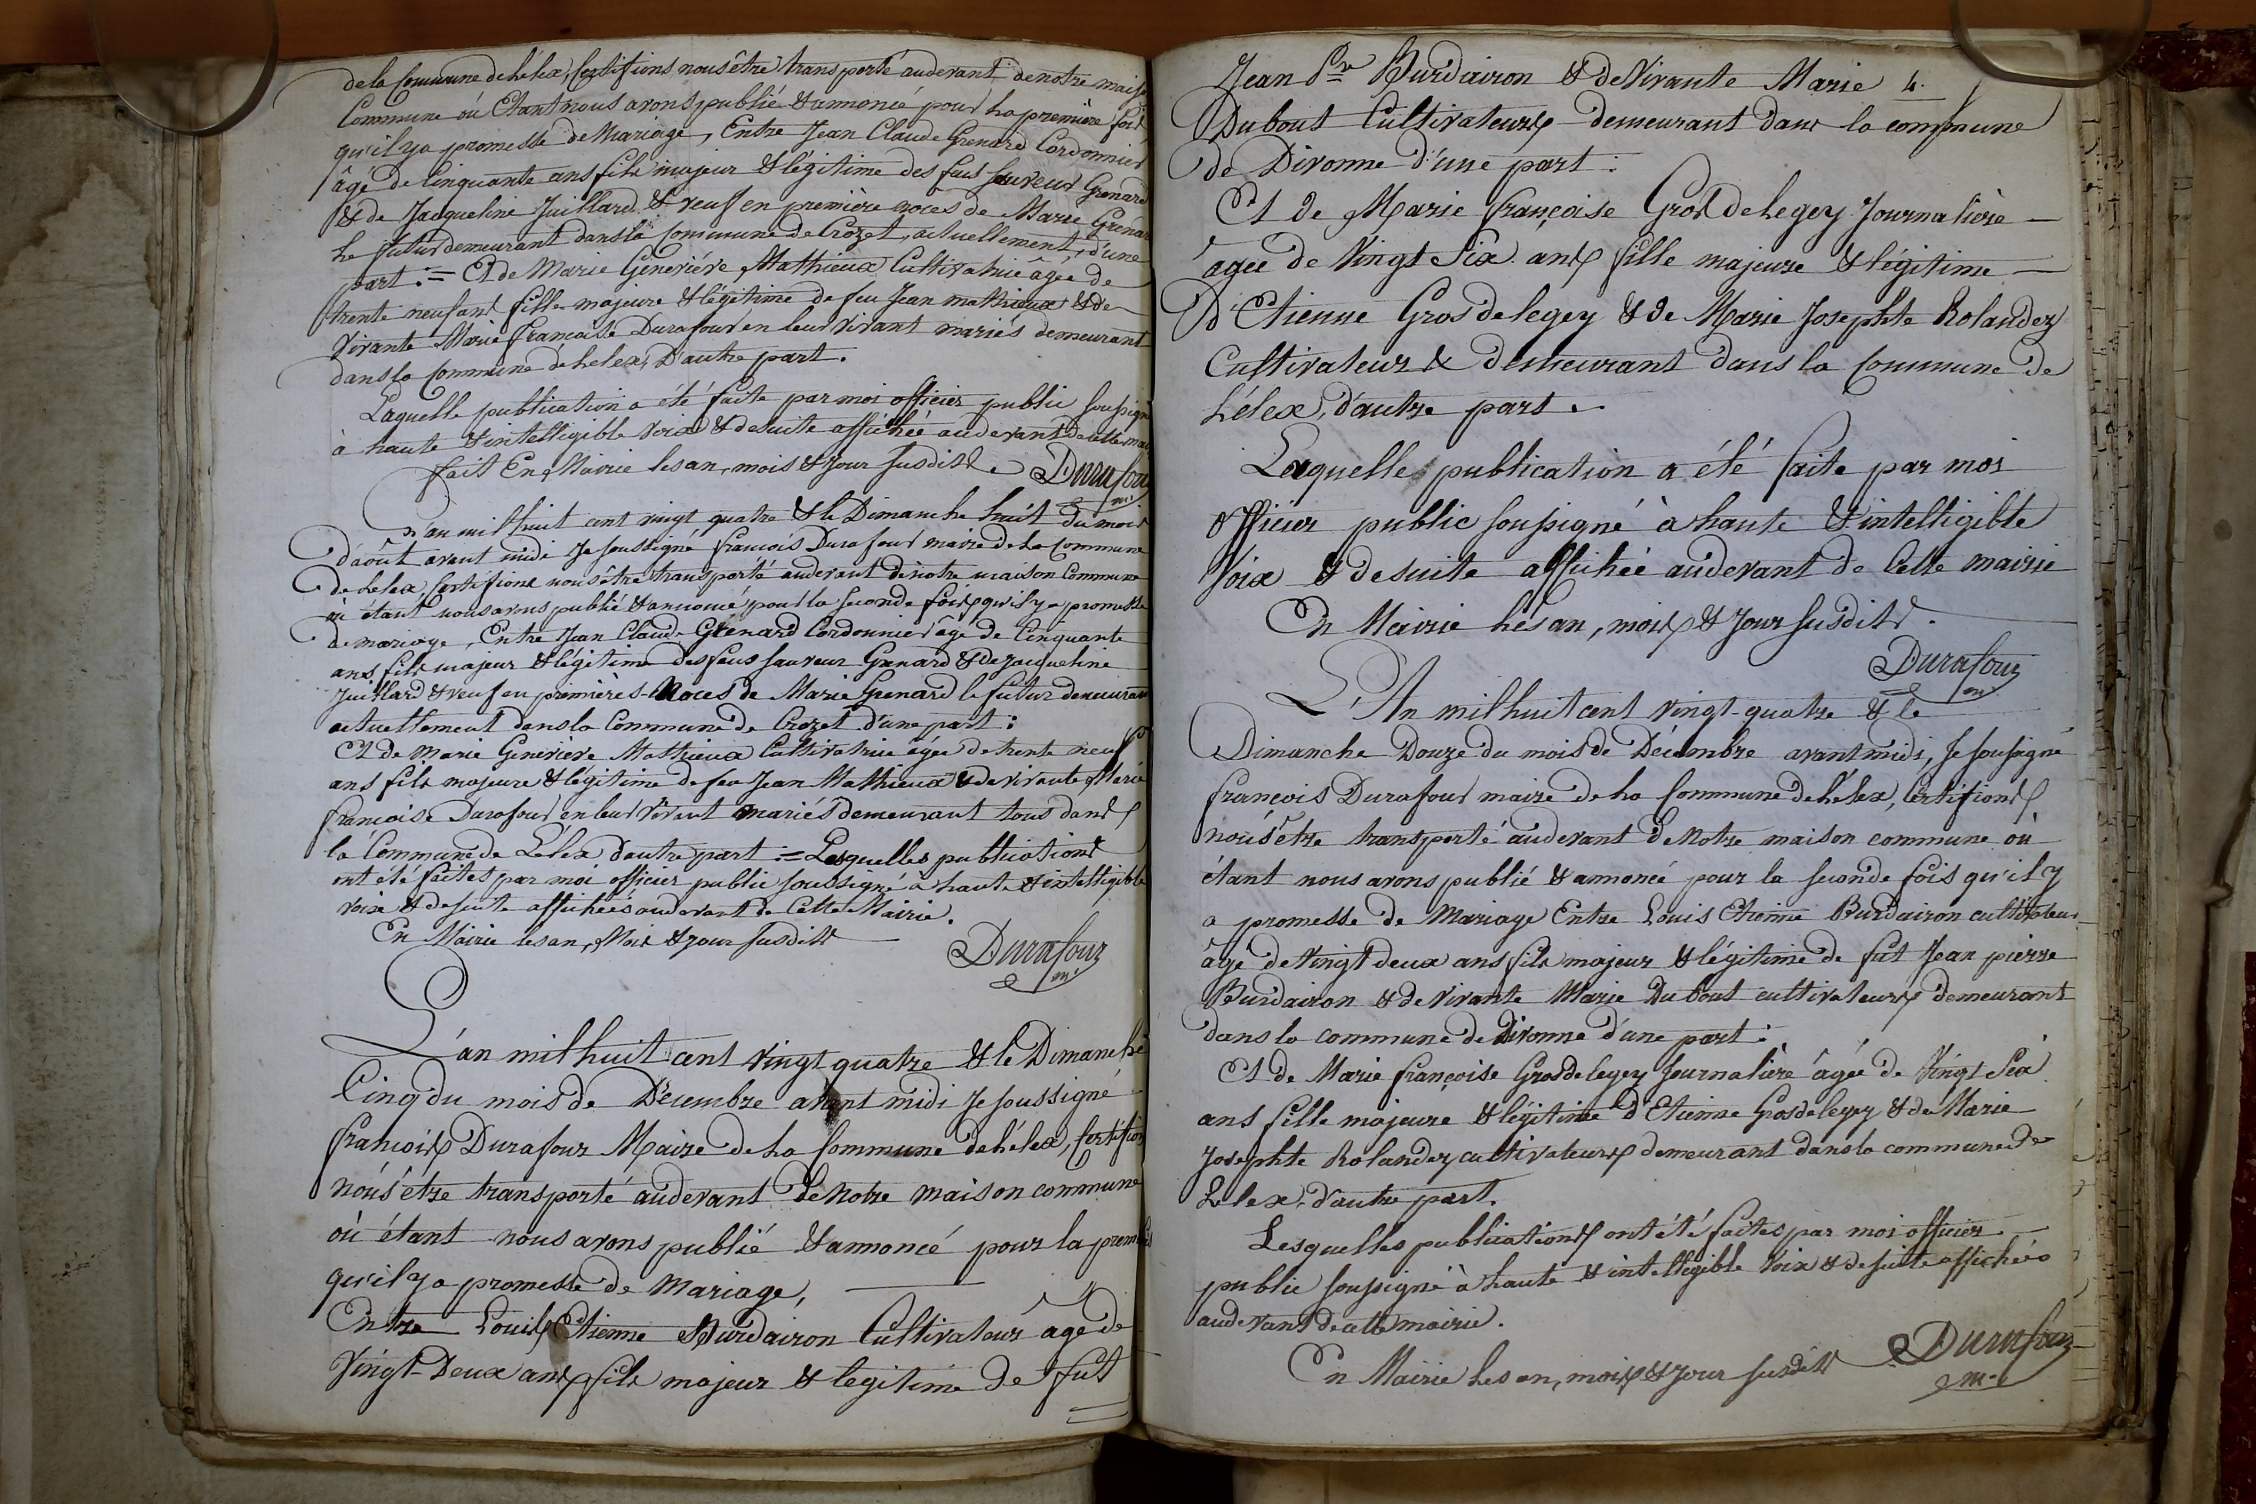 de la Commune de Lélex, Certifions nous être transporté au devant de notre maison
Commune où Etant nous avons publié & annoncé pour la première fois
qu'il y a promesse de Mariage, Entre Jean Claude Grenard Cordonnier
âgé de Cinquante ans fils majeur & légitime des feus Sauveur Grenard
& de Jacqueline Juillard & veuf en première noces de Marie Grenard
le futur demeurant dans la Commune de Crozet, actuellement, d'une
part := Et de Marie Geneviève Mathieux Cultivatrice âgée de
trente neuf ans fille majeure & légitime de feu Jean mathieux & de
Vivante Marie françoise Durafour en leur vivant mariés demeurant
dans la Commune de Lelex, D'autre part.
Laquelle publication a été faite par moi officier public soussigné
à haute & intelligible voix & de suite affichée au devant de cette mairie
fait En Mairie les an, mois & jour susdits Durafour
m.
L'an mil huit cent vingt quatre & le Dimanche huit du mois
d'août avant midi Je soussigné francois Durafour maire de la Commune
de Lelex, Certifions nous être transporté au devant de notre maison Commune
où étant nous avons publié & annoncé pour la seconde fois qu'il y a promesse
de mariage, Entre Jean Claude Grenard Cordonnier âgé de Cinquante
ans fils majeur & légitime des feus Sauveur Grenard & de Jacqueline
Juillard & veuf en premières Noces de Marie Grenard le futur demeurant
actuellement dans la Commune de Crozet d'une part :
Et de Marie Geneviève Mathieux Cultivatrice âgée de trente neuf
ans fille majeure & légitime de feu Jean Mathieux & de vivante Marie
francoise Durafour en leur Vivant mariés demeurant tous dans
la Commune de Lélex d'autre part := Lesquelles publications
ont été faites par moi officier public soussigné à haute & intelligible
voix & de suite affichées au devant de Cette Mairie.
En Mairie les an, Mois & jour susdits
Durafour
m.
L'an mil huit cent vingt quatre & le Dimanche
Cinq du mois de Décembre avant midi Je soussigné
francois Durafour Maire de la Commune de Lélex, Certifions
nous être transporté au devant de Notre maison commune
où étant nous avons publié & annoncé pour la première
qu'il y a promesse de Mariage,
Entre Louis Etienne Burdairon Cultivateur âgé de
Vingt-Deux ans fils majeur & légitime de fut
Jean Pre Burdairon & de Vivante Marie 4.
Dubout Cultivateurs demeurant dans la commune
de Divonne d'une part :
Et de Marie françoise Gros de legey Journalière
âgée de Vingt Six ans fille majeure & légitime
D'Etienne Gros de legey & de Marie Josephte Rolandez
Cultivateurs & demeurant dans la Commune de
Lélex, d'autre part.
Laquelle publication a été faite par moi
officier public soussigné à haute & intelligible
Voix & de suite affichée au devant de Cette mairie
En Mairie les an, mois & jour susdits.
Durafour
m
L'An mil huit cent vingt-quatre & le
Dimanche Douze du mois de Décembre avant midi, Je soussigné
françois Durafour maire de la Commune de Lélex, Certifions
nous être transporté au devant de Notre maison commune où
étant nous avons publié & annoncé pour la seconde fois qu'il y
a promesse de Mariage Entre Louis Etienne Burdairon cultivateur
âgé de Vingt deux ans fils majeur & légitime de fut Jean pierre
Burdairon & de Vivante Marie Dubout cultivateurs demeurant
dans la commune de Divonne d'une part :
Et de Marie françoise Gros de legey Journalière âgée de Vingt Six
ans fille majeure & légitime d'Etienne Gros de legey & de Marie
Josephte Rolandez cultivateurs demeurant dans la commune de
Lelex, d'autre part.
Lesquelles publications ont été faites par moi officier
public soussigné à haute & intelligible Voix & de suite affichées
au devant de cette mairie.
En Mairie les an, mois & jour susdits Durafour
m.